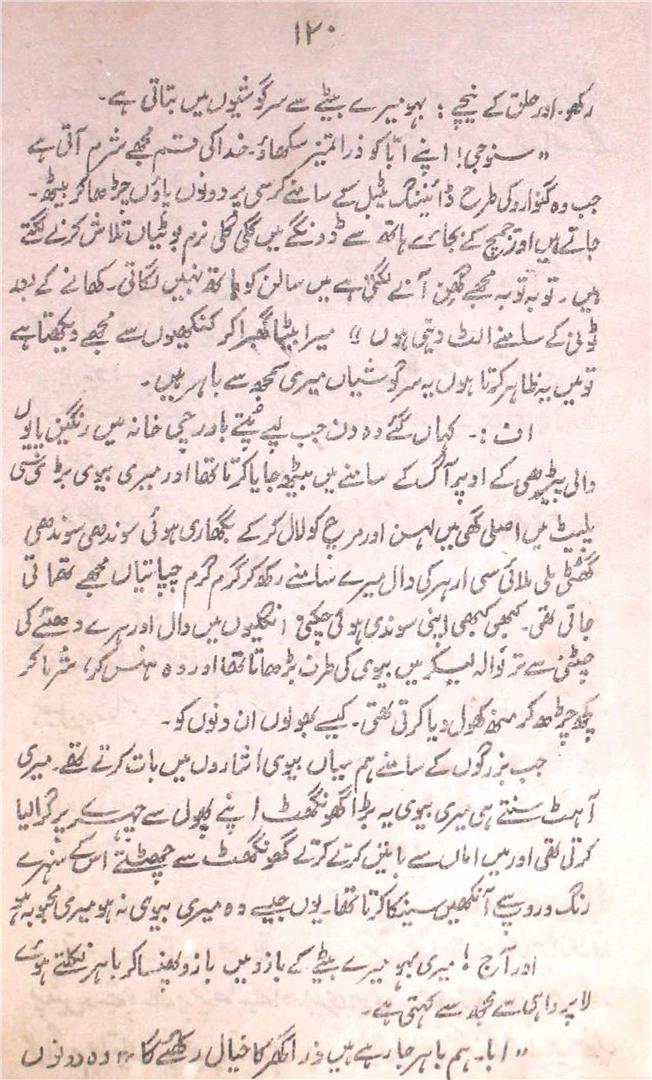 ۱۲۰
رکھو۔ اور حلق کے نیچے : بہو میرے بیٹے سے سرگوشیوں میں بتاتی ہے۔
" سنو جی! اپنے ابّا کو ذرا تمیز سکھاؤ۔ خدا کی قسم مجھے شرم آتی ہے
جب وہ گنوارو کی طرح ڈائیننگ ٹیبل کے سامنے کرسی پر دونوں پاؤں چڑھا کر بیٹھ۔
جاتے ہیں اور چمچ کے بجائے ہاتھ سے ڈونگے میں گلی گلی نرم بوٹیاں تلاش کرنے لگتے
ہیں۔ توبہ توبہ مجھے گھن آنے لگتی ہے میں سالن کو ہاتھ نہیں لگاتی۔ کھانے کے بعد
ڈبّی کے سامنے الٹ دیتی ہوں " میرا بیٹا گھبرا کر کنکھیوں سے مجھے دیکھتا ہے
تو میں یہ ظاہر کرتا ہوں یہ سرگوشیاں میری سمجھ سے باہر ہیں۔
اف :۔ کہاں گئے وہ دن جب لپے پُتے باورچی خانہ میں رنگین پایوں
والی پیڑھی کے اوپر آگ کے سامنے میں بیٹھ جایا کرتا تھا اور میری بیوی بڑی سی
پلیٹ میں اصلی گھی میں لہسن اور مرچ کو لال کر کے بگھاری ہوئی سوندھی سوندھی
گھٹی ملی ملائی سی ارہر کی دال میرے سامنے رکھ کر گرم گرم چپاتیاں مجھے تھماتی
جاتی تھی۔ کبھی کبھی اپنی سوندی ہوئی چکنی انگلیوں میں دال اور ہرے دھنئے کی
چٹنی سے تر نوالہ لیکر میں بیوی کی طرف بڑھاتا تھا اور وہ ہنس کر، شرما کر
کچھ چڑھ کر منھ کھول دیا کرتی تھی۔ کیسے بھولوں ان دنوں کو۔
جب بزرگوں کے سامنے ہم میاں بیوی اشاروں میں بات کرتے تھے۔ میری
آہٹ سنتے ہی میری بیوی یہ بڑا گھونگھٹ اپنے پھول سے چہرے پر گرا لیا
کرتی تھی اور میں اماں سے باتیں کرتے کرتے گھونگھٹ سے چھٹتے اس کے سنہرے
رنگ و روپ سے آنکھیں سینکا کرتا تھا۔ یوں جیسے وہ میری بیوی نہ ہو میری محبوبہ ہو
اور آج ! میری بہو میرے بیٹے کے بازو میں بازو پھنسا کر باہر نکلتے ہوئے
لاپرواہی سے مجھ سے کہتی ہے۔
" ابا۔ ہم باہر جا رہے ہیں ذرا گھر کا خیال رکھئے گا " وہ دونوں